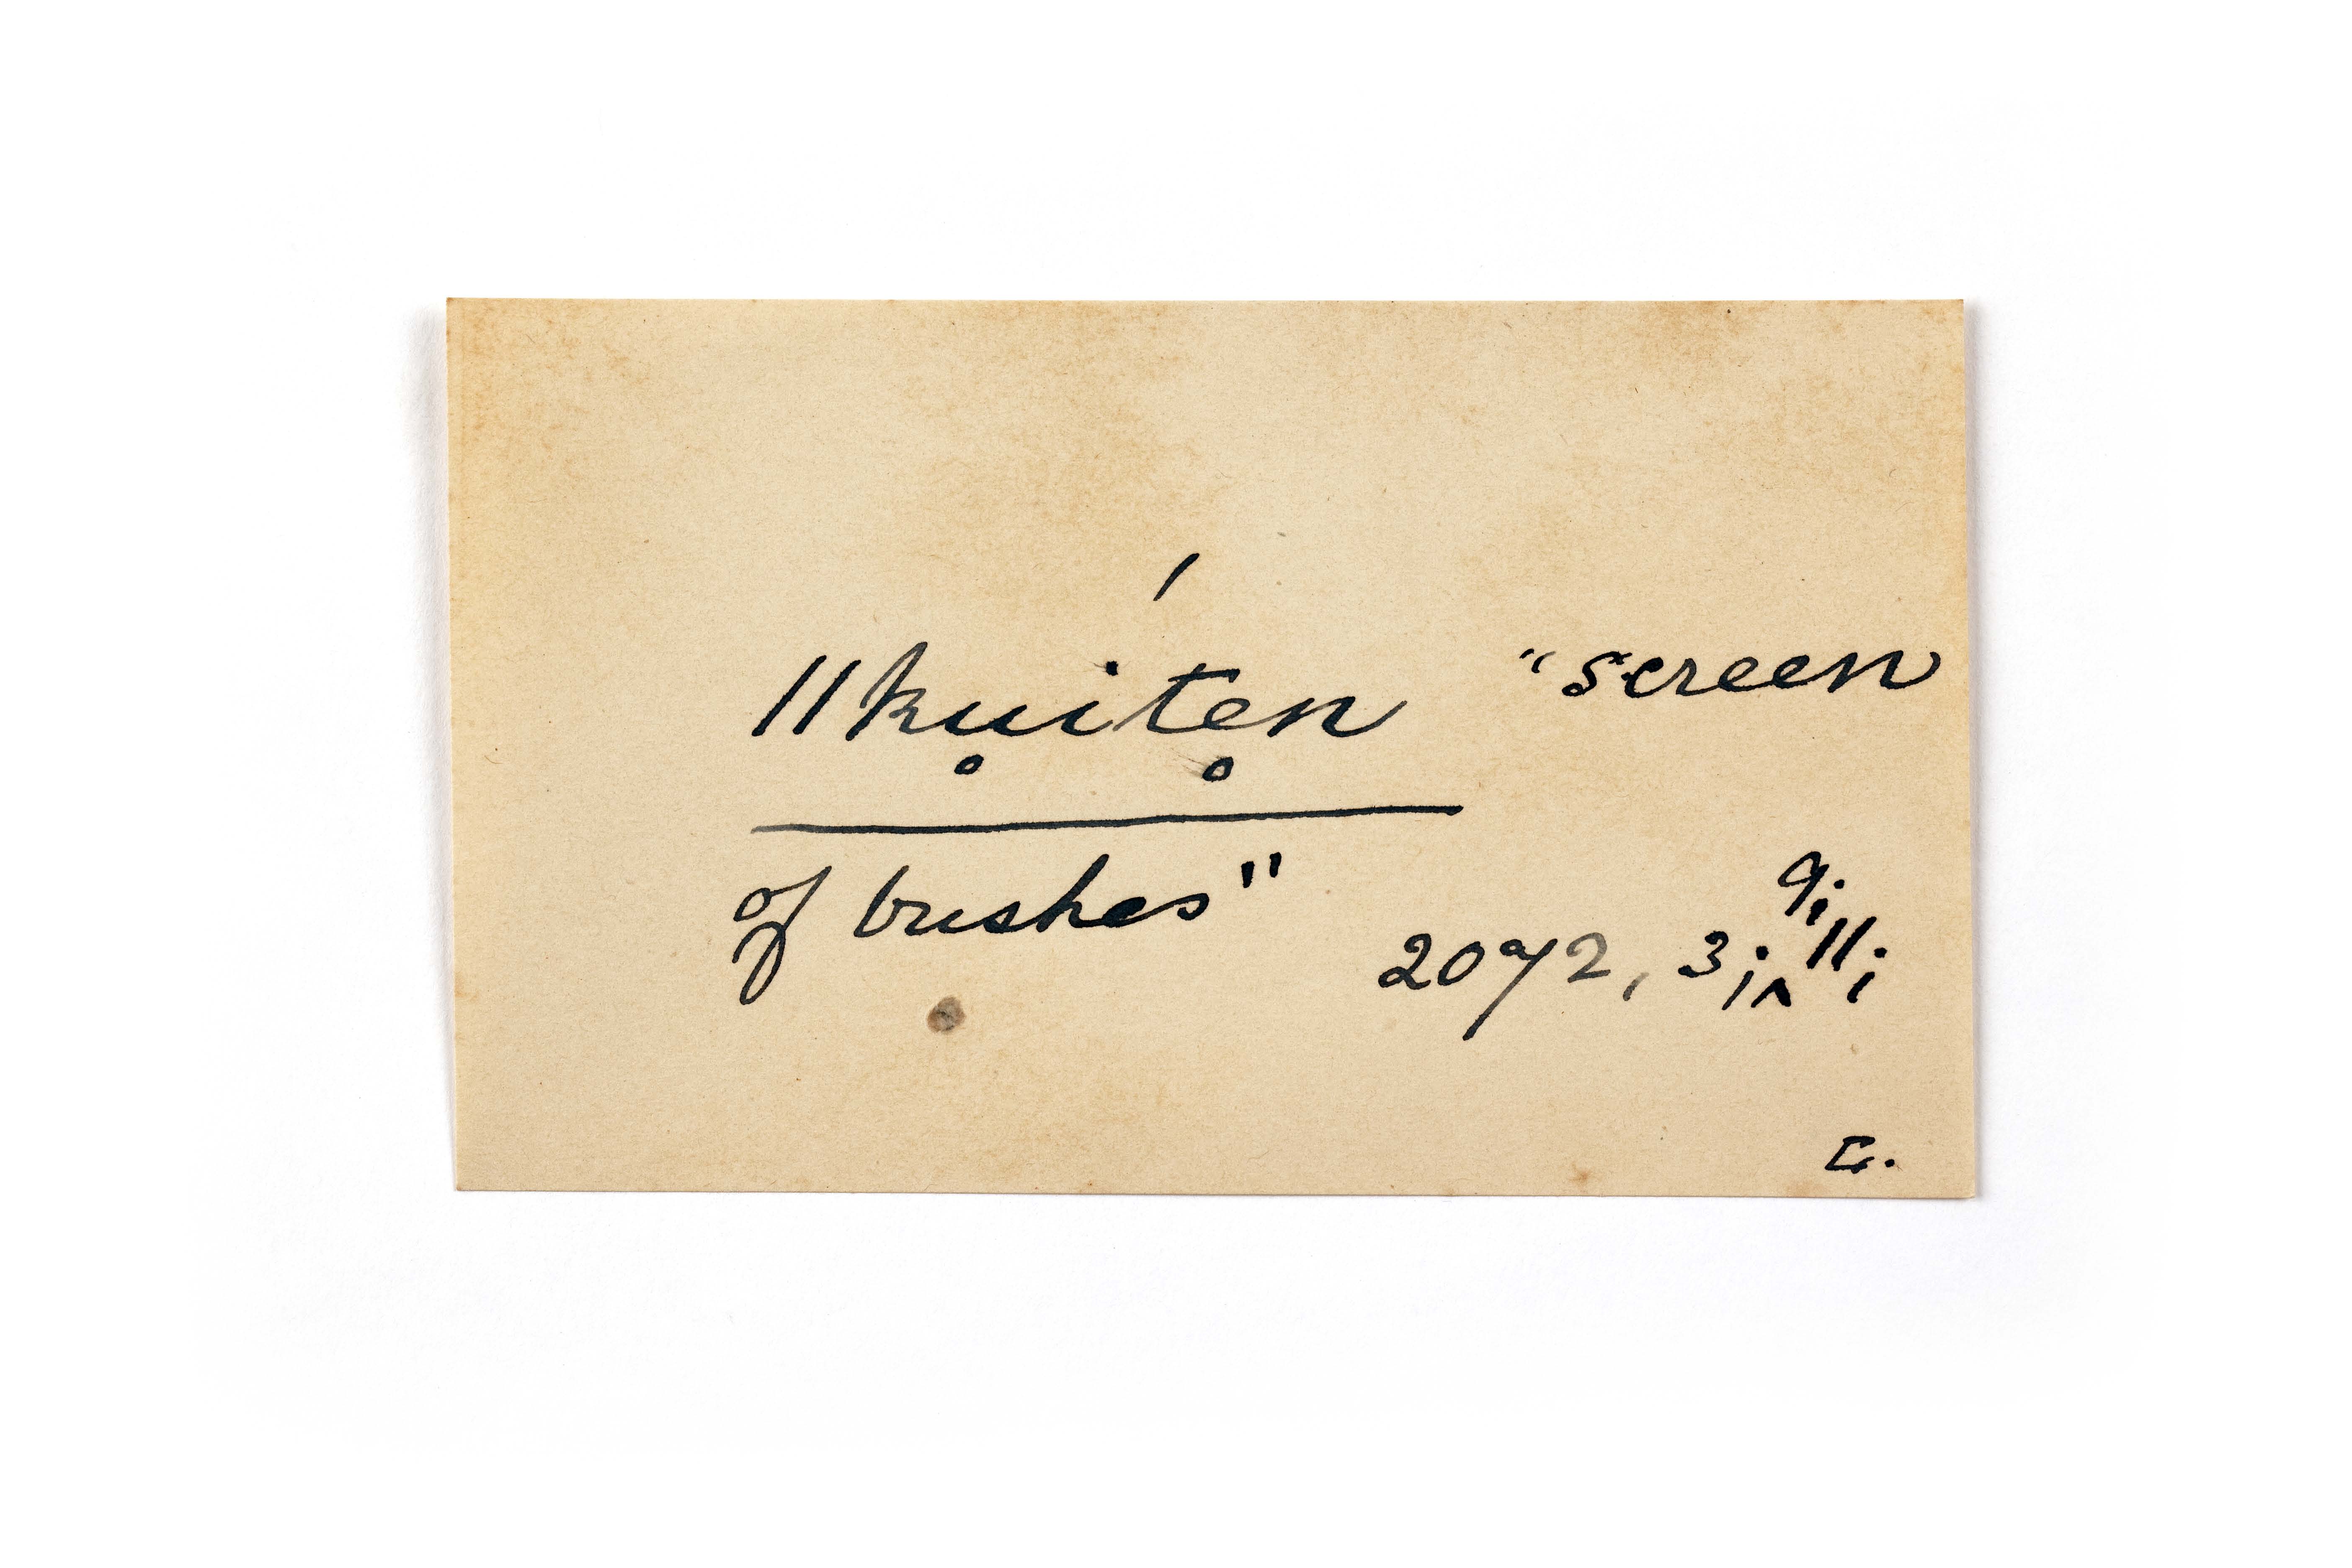 ǁku̥íte̥n "screen
of bushes"
2072, 3; 9; 11;
C.